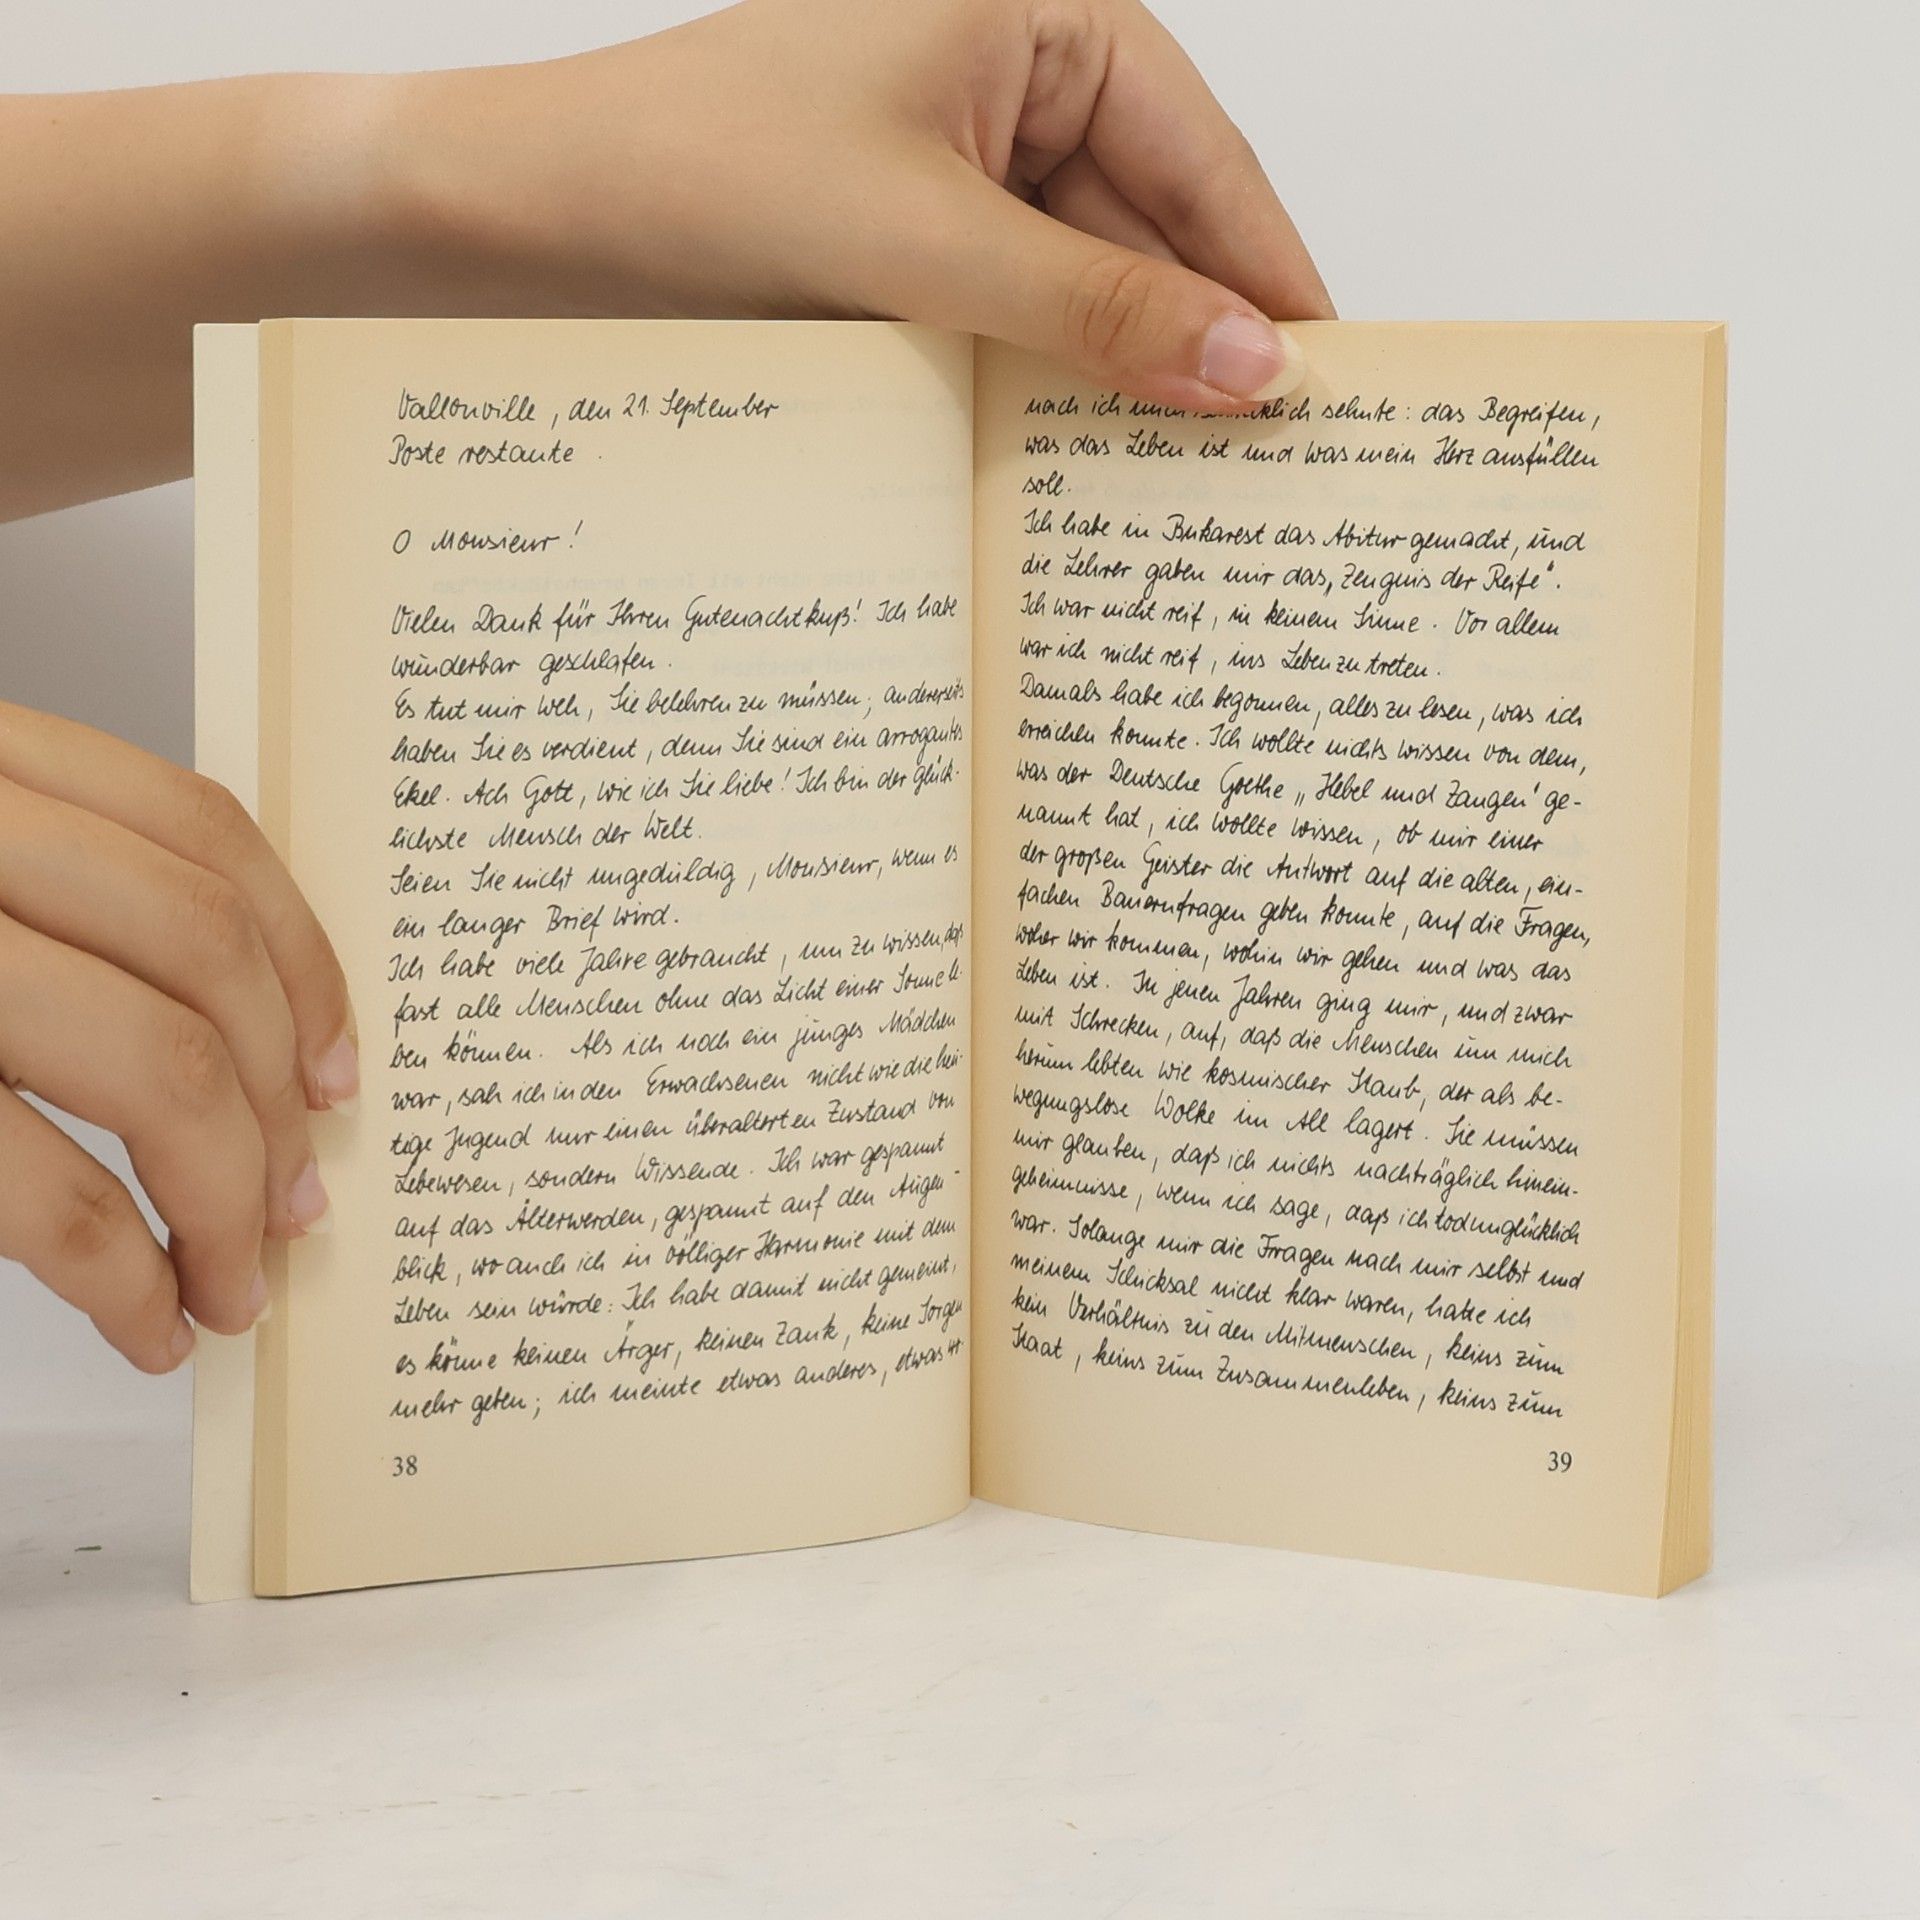 Vallonville, den 21. September
Poste restante
O Monsieur!
Vielen Dank für Ihren Gutenachtkuß! Ich habe
wunderbar geschlafen.
Es tut mir weh, Sie belehren zu müssen; andererseits
haben Sie es verdient, denn Sie sind ein arrogantes
Ekel. Ach Gott, wie ich Sie liebe! Ich bin der glück-
lichste Mensch der Welt.
Seien Sie nicht ungeduldig, Monsieur, wenn es
ein langer Brief wird.
Ich habe viele Jahre gebraucht, um zu wissen, daß
fast alle Menschen ohne das Licht einer Sonne le-
ben können. Als ich noch ein junges Mädchen
war, sah ich in den Erwachsenen nicht wie die heu-
tige Jugend nur einen überalterten Zustand von
Lebewesen, sondern Wissende. Ich war gespannt
auf das Älterwerden, gespannt auf den Augen-
blick, wo auch ich in völliger Harmonie mit dem
Leben sein würde: Ich habe damit nicht gemeint,
es könne keinen Ärger, keinen Zank, keine Sorgen
mehr geben; ich meinte etwas anderes, etwas
38
nach ich sehnte: das Begreifen,
was das Leben ist und was mein Herz ausfüllen
soll.
Ich habe in Bukarest das Abitur gemacht, und
die Lehrer gaben mir das „Zeugnis der Reife".
Ich war nicht reif, in keinem Sinne. Vor allem
war ich nicht reif, ins Leben zu treten.
Damals habe ich begonnen, alles zu lesen, was ich
erreichen konnte. Ich wollte nichts wissen von dem,
was der Deutsche Goethe „Hebel und Zangen" ge-
nannt hat, ich wollte wissen, ob mir einer
der großen Geister die Antwort auf die alten, ein-
fachen Bauernfragen geben konnte, auf die Fragen,
woher wir kommen, wohin wir gehen und was das
Leben ist. In jenen Jahren ging mir, und zwar
mit Schrecken, auf, daß die Menschen um mich
herum lebten wie kosmischer Staub, der als be-
wegungslose Wolke im All lagert. Sie müssen
mir glauben, daß ich nichts nachträglich hinein-
geheimnisse, wenn ich sage, daß ich todunglücklich
war. Solange mir die Fragen nach mir selbst und
meinem Schicksal nicht klar waren, hatte ich
kein Verhältnis zu den Mitmenschen, keins zum
Staat, keins zum Zusammenleben, keins zum
39